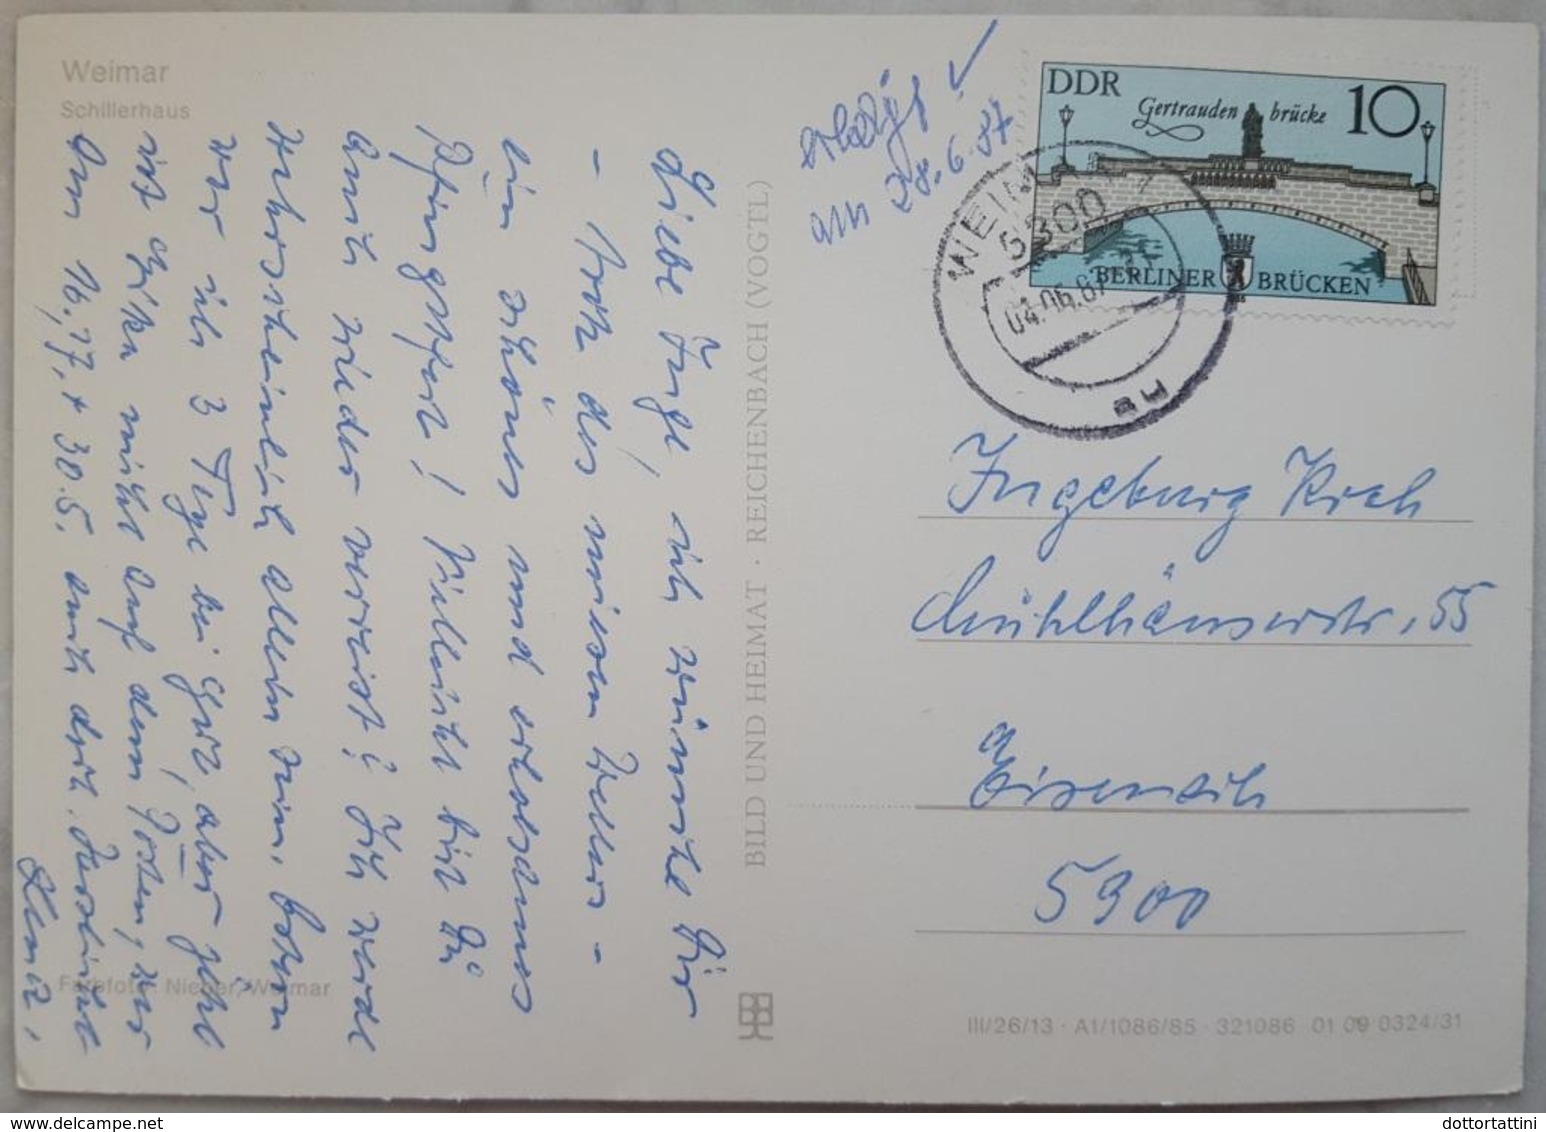 Weimar
Schillerhaus
Liebe Inge, ich wünsche Dir
- trotz des miesen Wetters -
ein schönes und erholsames
Pfingstfest! Vielleicht bist Du
auch wieder verreist? Ich werde
wahrscheinlich allein sein. Ostern
war ich 3 Tage bei
aber
ist
nicht auf dem Posten, war
am 16., 17. + 30.5. auch dort. Herzlichst
BILD UND HEIMAT · REICHENBACH (VOGTL)
Farbfoto: Nieber, Weimar
erledigt ✓
am 28.6.87
DDR
Gertraudenbrücke
10
BERLINER BRÜCKEN
WEIM
5300
04.06.87
Ingeburg
Mühlhäuserstr. 55
Eisenach
5900
III/26/13 · A1/1086/85 · 321086 01 09 0324/31
dottortattini